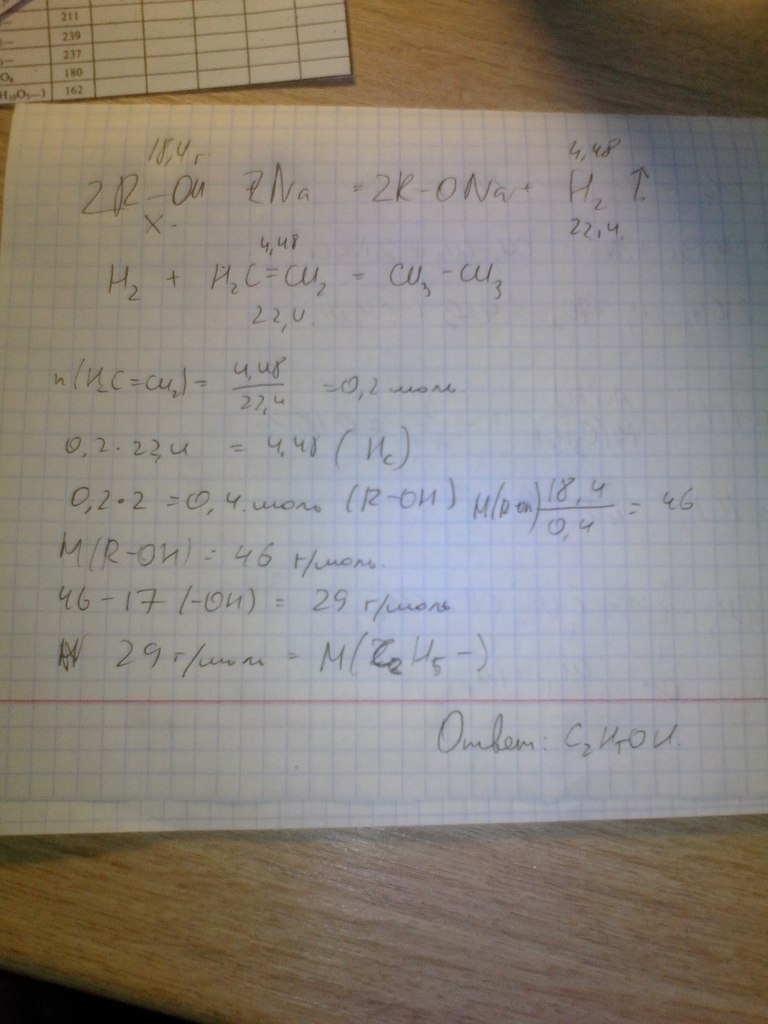 211
239
237
180
162
18,4 г 4,48
2R-OH 2Na = 2R-ONa + H₂ ↑
x 22,4
4,48
H₂ + H₂C=CH₂ = CH₃-CH₃
22,4
n(H₂C=CH₂) = 4,48/22,4 = 0,2 моль
0,2·22,4 = 4,48 (H₂)
0,2·2 = 0,4 моль (R-OH) M(R-OH) 18,4/0,4 = 46
M(R-OH) = 46 г/моль.
46-17 (-OH) = 29 г/моль
29 г/моль = M(C₂H₅-)
Ответ: C₂H₅OH